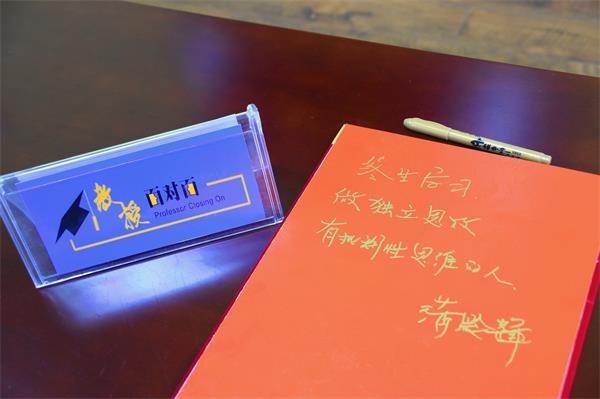 教授 面对面
Professor Closing On
终生学习,
做独立思考
有批判性思维的人.